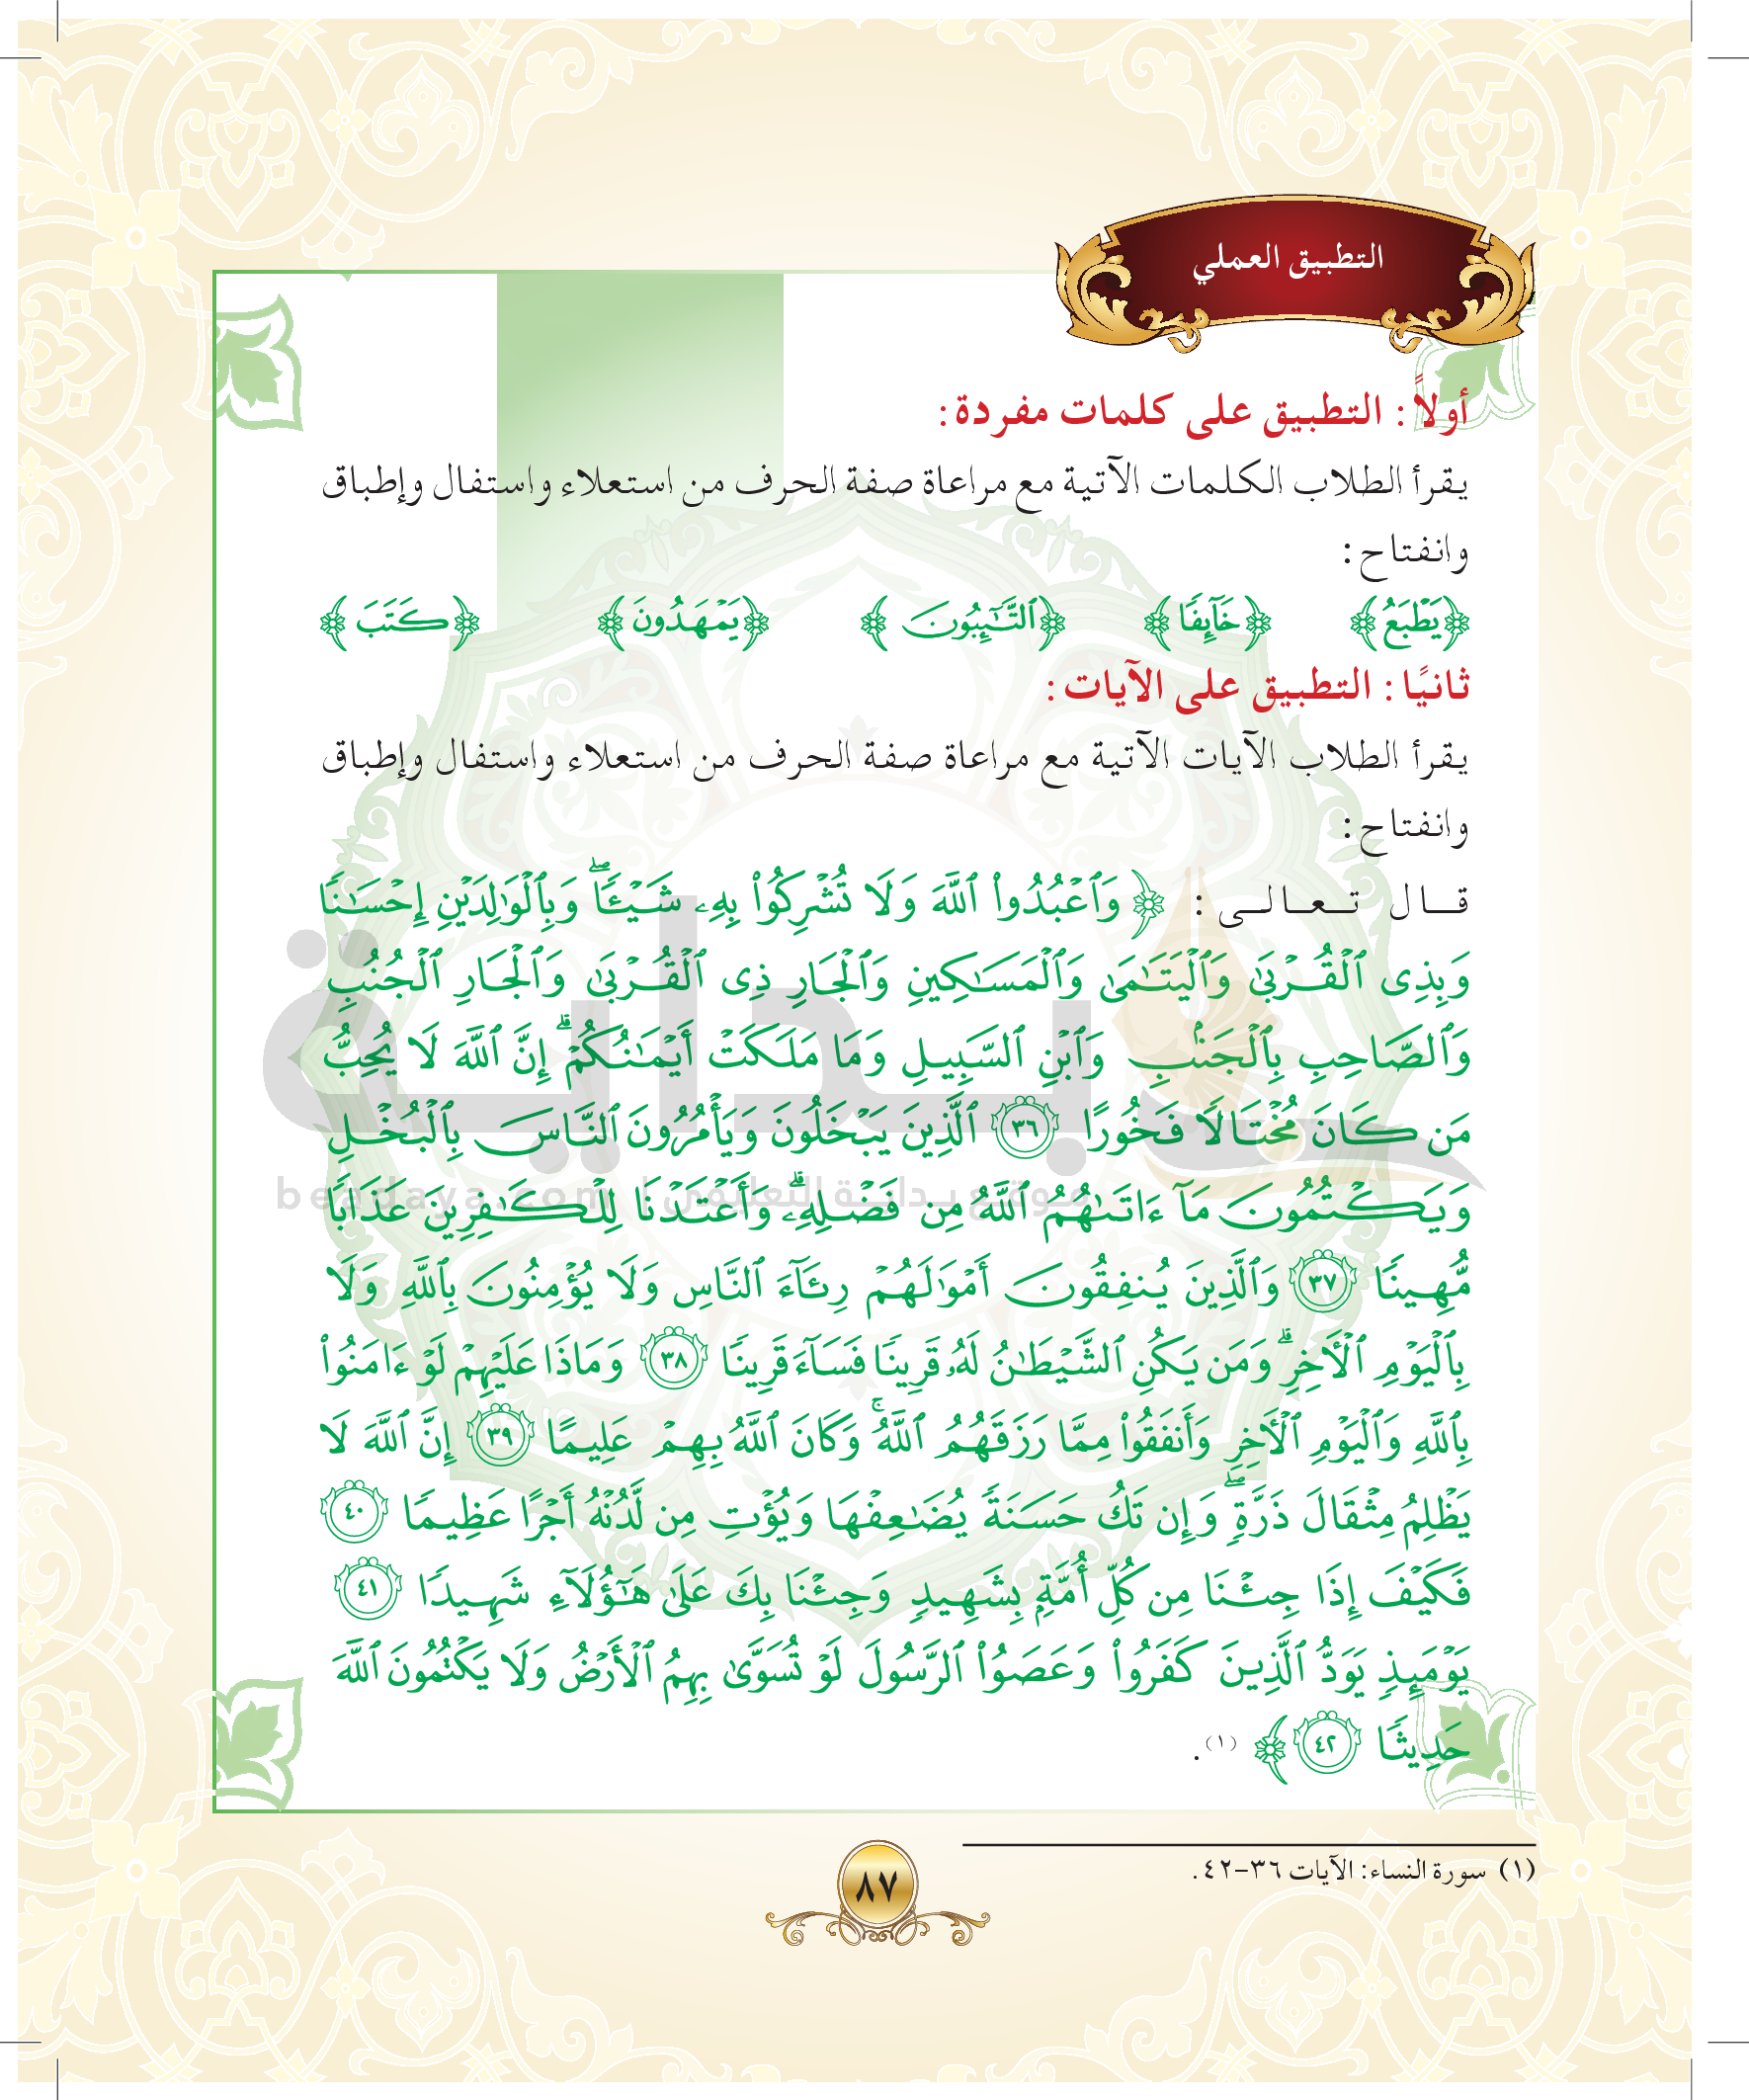 التطبيق العملي
أولاً: التطبيق على كلمات مفردة:
يقرأ الطلاب الكلمات الآتية مع مراعاة صفة الحرف من استعلاء واستفال وإطباق
وانفتاح:
﴿يَطۡبَعُ﴾ ﴿خَآئِفٗا﴾ ﴿ٱلتَّٰٓئِبُونَ﴾ ﴿يَمۡهَدُونَ﴾ ﴿كَتَبَ﴾
ثانيًا: التطبيق على الآيات:
يقرأ الطلاب الآيات الآتية مع مراعاة صفة الحرف من استعلاء واستفال وإطباق
وانفتاح:
قال تعالى: ﴿وَٱعۡبُدُواْ ٱللَّهَ وَلَا تُشۡرِكُواْ بِهِۦ شَيۡـٔٗاۖ وَبِٱلۡوَٰلِدَيۡنِ إِحۡسَٰنٗا
وَبِذِي ٱلۡقُرۡبَىٰ وَٱلۡيَتَٰمَىٰ وَٱلۡمَسَٰكِينِ وَٱلۡجَارِ ذِي ٱلۡقُرۡبَىٰ وَٱلۡجَارِ ٱلۡجُنُبِ
وَٱلصَّاحِبِ بِٱلۡجَنۢبِ وَٱبۡنِ ٱلسَّبِيلِ وَمَا مَلَكَتۡ أَيۡمَٰنُكُمۡۗ إِنَّ ٱللَّهَ لَا يُحِبُّ
مَن كَانَ مُخۡتَالٗا فَخُورًا ٣٦ ٱلَّذِينَ يَبۡخَلُونَ وَيَأۡمُرُونَ ٱلنَّاسَ بِٱلۡبُخۡلِ
وَيَكۡتُمُونَ مَآ ءَاتَىٰهُمُ ٱللَّهُ مِن فَضۡلِهِۦۗ وَأَعۡتَدۡنَا لِلۡكَٰفِرِينَ عَذَابٗا
مُّهِينٗا ٣٧ وَٱلَّذِينَ يُنفِقُونَ أَمۡوَٰلَهُمۡ رِئَآءَ ٱلنَّاسِ وَلَا يُؤۡمِنُونَ بِٱللَّهِ وَلَا
بِٱلۡيَوۡمِ ٱلۡأٓخِرِۗ وَمَن يَكُنِ ٱلشَّيۡطَٰنُ لَهُۥ قَرِينٗا فَسَآءَ قَرِينٗا ٣٨ وَمَاذَا عَلَيۡهِمۡ لَوۡ ءَامَنُواْ
بِٱللَّهِ وَٱلۡيَوۡمِ ٱلۡأٓخِرِ وَأَنفَقُواْ مِمَّا رَزَقَهُمُ ٱللَّهُۚ وَكَانَ ٱللَّهُ بِهِمۡ عَلِيمًا ٣٩ إِنَّ ٱللَّهَ لَا
يَظۡلِمُ مِثۡقَالَ ذَرَّةٖۖ وَإِن تَكُ حَسَنَةٗ يُضَٰعِفۡهَا وَيُؤۡتِ مِن لَّدُنۡهُ أَجۡرًا عَظِيمٗا ٤٠
فَكَيۡفَ إِذَا جِئۡنَا مِن كُلِّ أُمَّةِۭ بِشَهِيدٖ وَجِئۡنَا بِكَ عَلَىٰ هَٰٓؤُلَآءِ شَهِيدٗا ٤١
يَوۡمَئِذٖ يَوَدُّ ٱلَّذِينَ كَفَرُواْ وَعَصَوُاْ ٱلرَّسُولَ لَوۡ تُسَوَّىٰ بِهِمُ ٱلۡأَرۡضُ وَلَا يَكۡتُمُونَ ٱللَّهَ
حَدِيثٗا ٤٢﴾ (١).
بداية
موقع بداية التعليمي | beadaya.com
(١) سورة النساء: الآيات ٣٦-٤٢.
٨٧